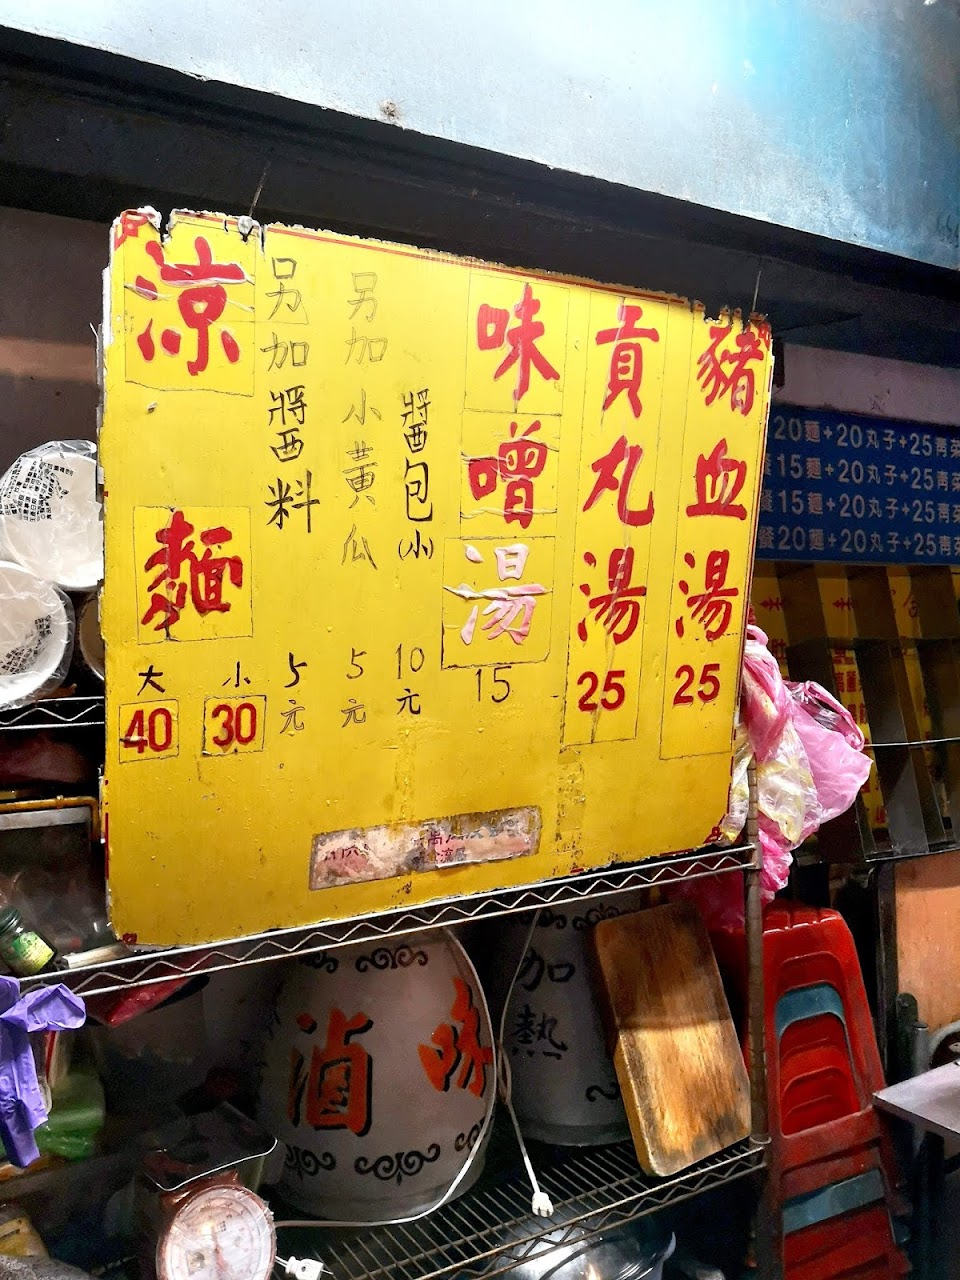 涼麵
大 40
小 30
另加醬料 5元
另加小黃瓜 5元
醬包(小) 10元
味噌湯 15
貢丸湯 25
豬血湯 25
20麵+20丸子+25青菜
15麵+20丸子+25青菜
15麵+20丸子+25青菜
餐20麵+20丸子+25青菜
滷
加熱